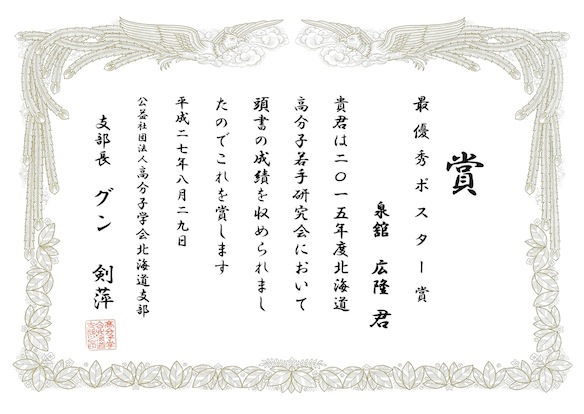 賞
最優秀ポスター賞
泉舘 広隆 君
貴君は二〇一五年度北海道
高分子若手研究会において
頭書の成績を収められまし
たのでこれを賞します
平成二七年八月二九日
公益社団法人高分子学会北海道支部
支部長 グン 剣萍